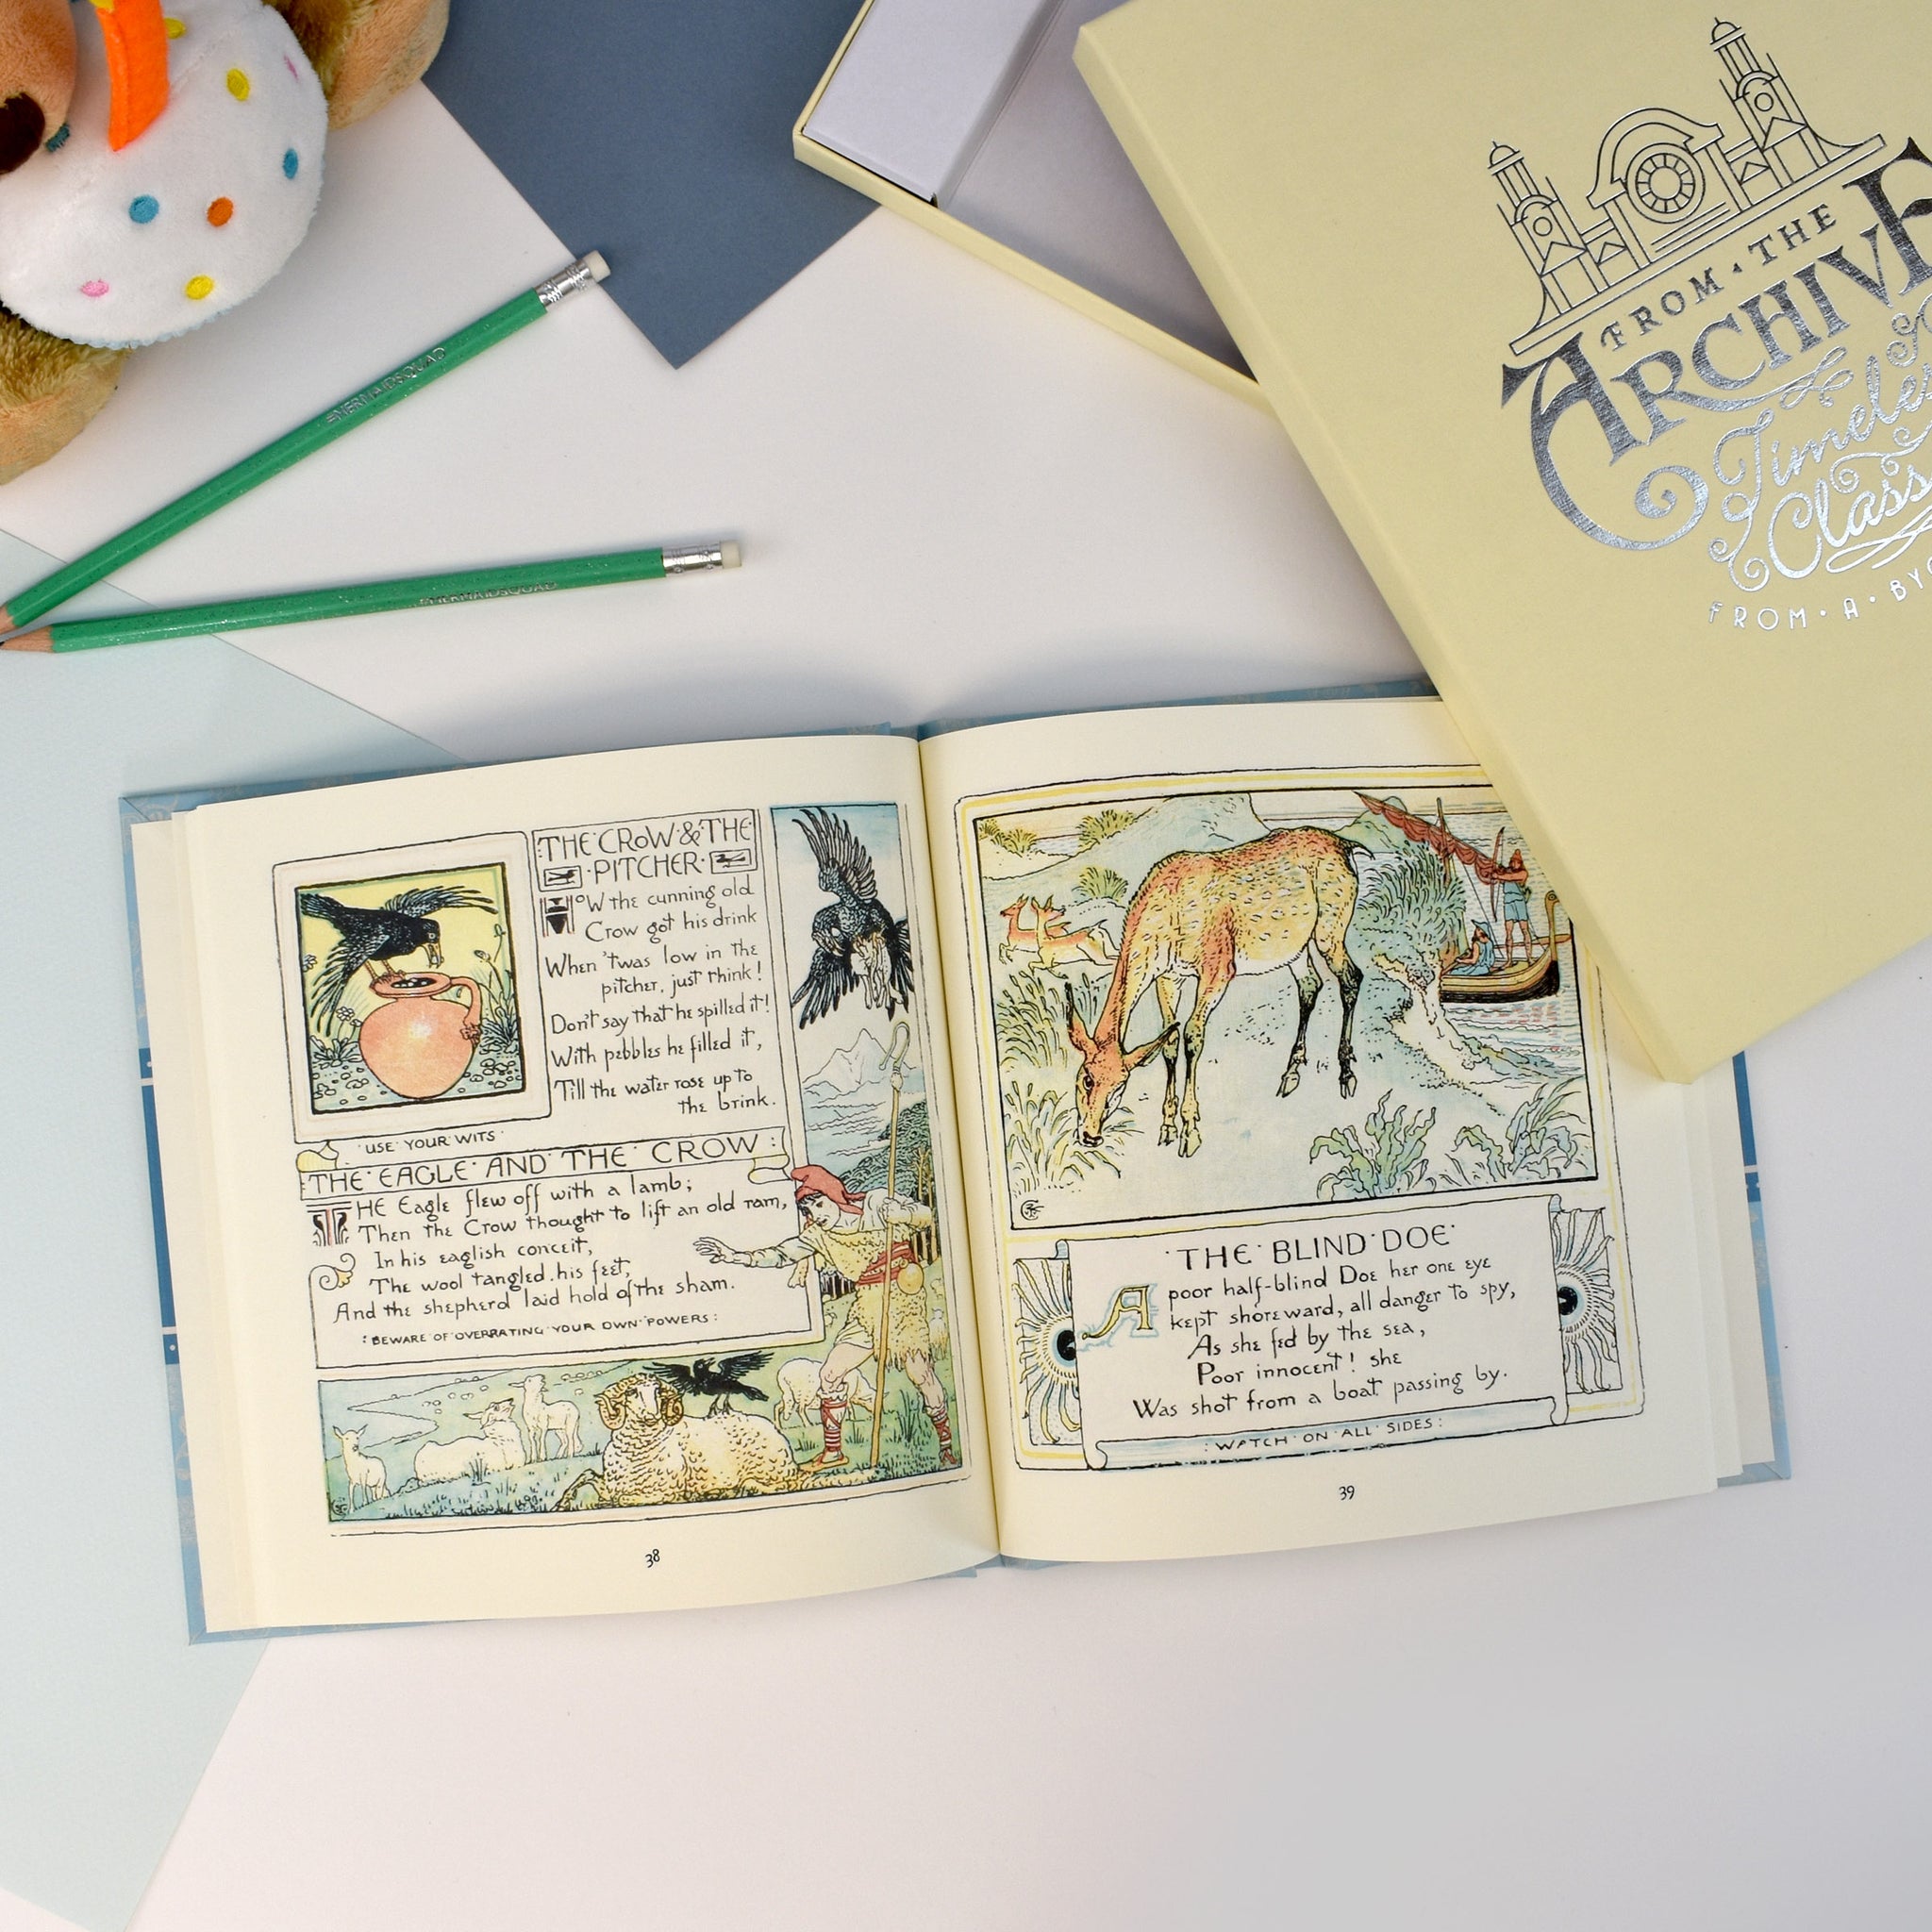 EMERMAIDSQUAD
EMERMAIDSQUAD
FROM · THE
ARCHIVE
FROM · A ·
THE · CROW · & · THE
· PITCHER ·
HOW the cunning old
Crow got his drink
When 'twas low in the
pitcher, just think!
Don't say that he spilled it!
With pebbles he filled it,
Till the water rose up to
the brink.
· USE · YOUR · WITS ·
THE · EAGLE · AND · THE · CROW :
THE Eagle flew off with a lamb;
Then the Crow thought to lift an old ram,
In his eaglish conceit,
The wool tangled his feet,
And the shepherd laid hold of the sham.
: BEWARE · OF · OVERRATING · YOUR · OWN · POWERS :
38
· THE · BLIND · DOE ·
A poor half-blind Doe her one eye
kept shoreward, all danger to spy,
As she fed by the sea,
Poor innocent! she
Was shot from a boat passing by.
: WATCH · ON · ALL · SIDES :
39